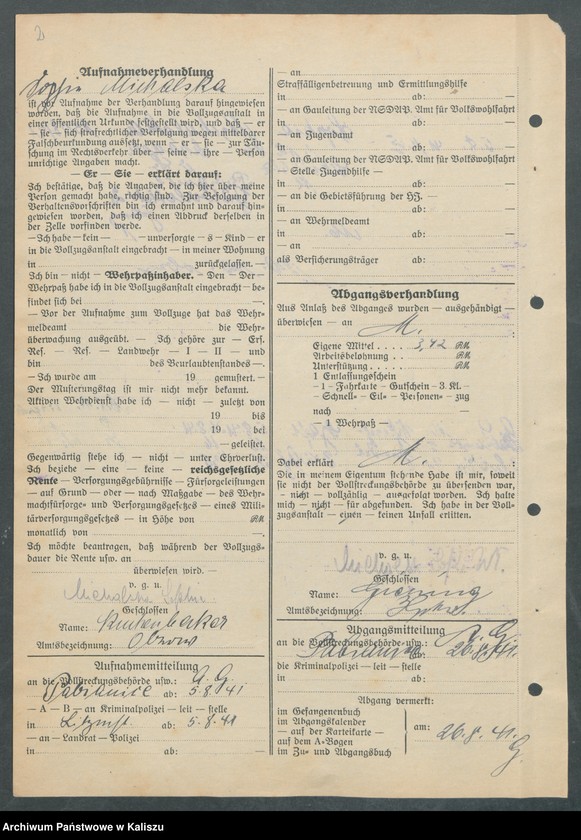 2
Aufnahmeverhandlung
Sophie Michalska
ist vor Aufnahme der Verhandlung darauf hingewiesen
worden, daß die Aufnahme in die Vollzugsanstalt in
einer öffentlichen Urkunde festgestellt wird, und daß — er
— sie — sich strafrechtlicher Verfolgung wegen mittelbarer
Falschbeurkundung aussetzt, wenn — er — sie — zur Täu-
schung im Rechtsverkehr über — seine — ihre — Person
unrichtige Angaben macht.
— Er — Sie — erklärt darauf:
Ich bestätige, daß die Angaben, die ich hier über meine
Person gemacht habe, richtig sind. Zur Befolgung der
Verhaltensvorschriften bin ich ermahnt und darauf hin-
gewiesen worden, daß ich einen Abdruck derselben in
der Zelle vorfinden werde.
— Ich habe — kein — unversorgte — s — Kind — er
in die Vollzugsanstalt eingebracht — in meiner Wohnung
in zurückgelassen. —
Ich bin — nicht — Wehrpaßinhaber. — Den — Der —
Wehrpaß habe ich in die Vollzugsanstalt eingebracht — be-
findet sich bei —.
— Vor der Aufnahme zum Vollzuge hat das Wehr-
meldeamt die Wehr-
überwachung ausgeübt. — Ich gehöre zur — Ers.
Res. — Res. — Landwehr — I — II — und
bin des Beurlaubtenstandes —.
— Ich wurde am 19 gemustert. —
Der Musterungstag ist mir nicht mehr bekannt.
Aktiven Wehrdienst habe ich — nicht — zuletzt von
19 bis
19 bei
geleistet.
Gegenwärtig stehe ich — nicht — unter Ehrverlust.
Ich beziehe — eine — keine — reichsgesetzliche
Rente — Versorgungsgebührnisse — Fürsorgeleistungen
— auf Grund — oder — nach Maßgabe des Wehr-
machtfürsorge- und Versorgungsgesetzes — eines Mili-
tärversorgungsgesetzes — in Höhe von RM
monatlich von —.
Ich möchte beantragen, daß während der Vollzugs-
dauer die Rente usw. an
überwiesen wird. —
v. g. u.
Michalska
Geschlossen
Name:
Amtsbezeichnung:
Aufnahmemitteilung
an die Vollstreckungsbehörde usw.: A. G.
Pabianice 5. 8. 41
— A — B — an Kriminalpolizei — leit — stelle
in Litzmst. ab: 5. 8. 41
— an — Landrat — Polizei
in ab: —
— an
Straffälligenbetreuung und Ermittlungshilfe
in ab: —
— an Gauleitung der NSDAP. Amt für Volkswohlfahrt
in ab: —
— an Jugendamt
in ab: —
— an Gauleitung der NSDAP. Amt für Volkswohlfahrt
— Stelle Jugendhilfe —
in ab: —
— an die Gebietsführung der HJ. —
in ab: —
— an Wehrmeldeamt
in ab: —
— an
als Versicherungsträger ab: —
Abgangsverhandlung
Aus Anlaß des Abganges wurden — ausgehändigt —
überwiesen — an M. :
Eigene Mittel 3,42 RM.
Arbeitsbelohnung RM.
Unterstützung RM.
1 Entlassungsschein
— 1 — Fahrkarte — Gutschein — 3 Kl. —
— Schnell- — Eil- — Personen- — zug
nach —
— 1 Wehrpaß —
Dabei erklärt M. :
Die in meinem Eigentum stehende Habe ist mir, soweit
sie nicht der Vollstreckungsbehörde zu übersenden war,
— nicht — vollzählig — ausgefolgt worden. Ich halte
mich — nicht — für abgefunden. Ich habe in der Voll-
zugsanstalt — einen — keinen Unfall erlitten.
v. g. u.
Geschlossen
Name:
Amtsbezeichnung:
Abgangsmitteilung
an die Vollstreckungsbehörde usw.: A. G.
Pabianice ab: 26. 8. 41
die Kriminalpolizei — leit — stelle
in ab:
Abgang vermerkt:
im Gefangenenbuch
im Abgangskalender
— auf der Karteikarte —
— auf dem A-Bogen
im Zu- und Abgangsbuch
am: 26. 8. 41.
G.
Archiwum Państwowe w Kaliszu